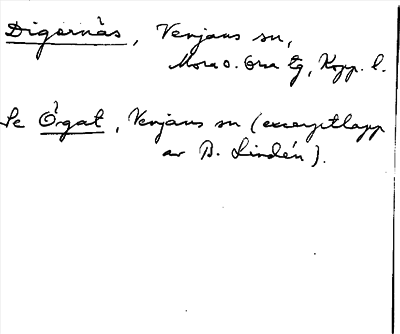 Digernäs, Venjans sn,
Mora o. Orsa tg, Kopp. l.
Se Örgat, Venjans sn (excerptlapp
av B. Lindén).